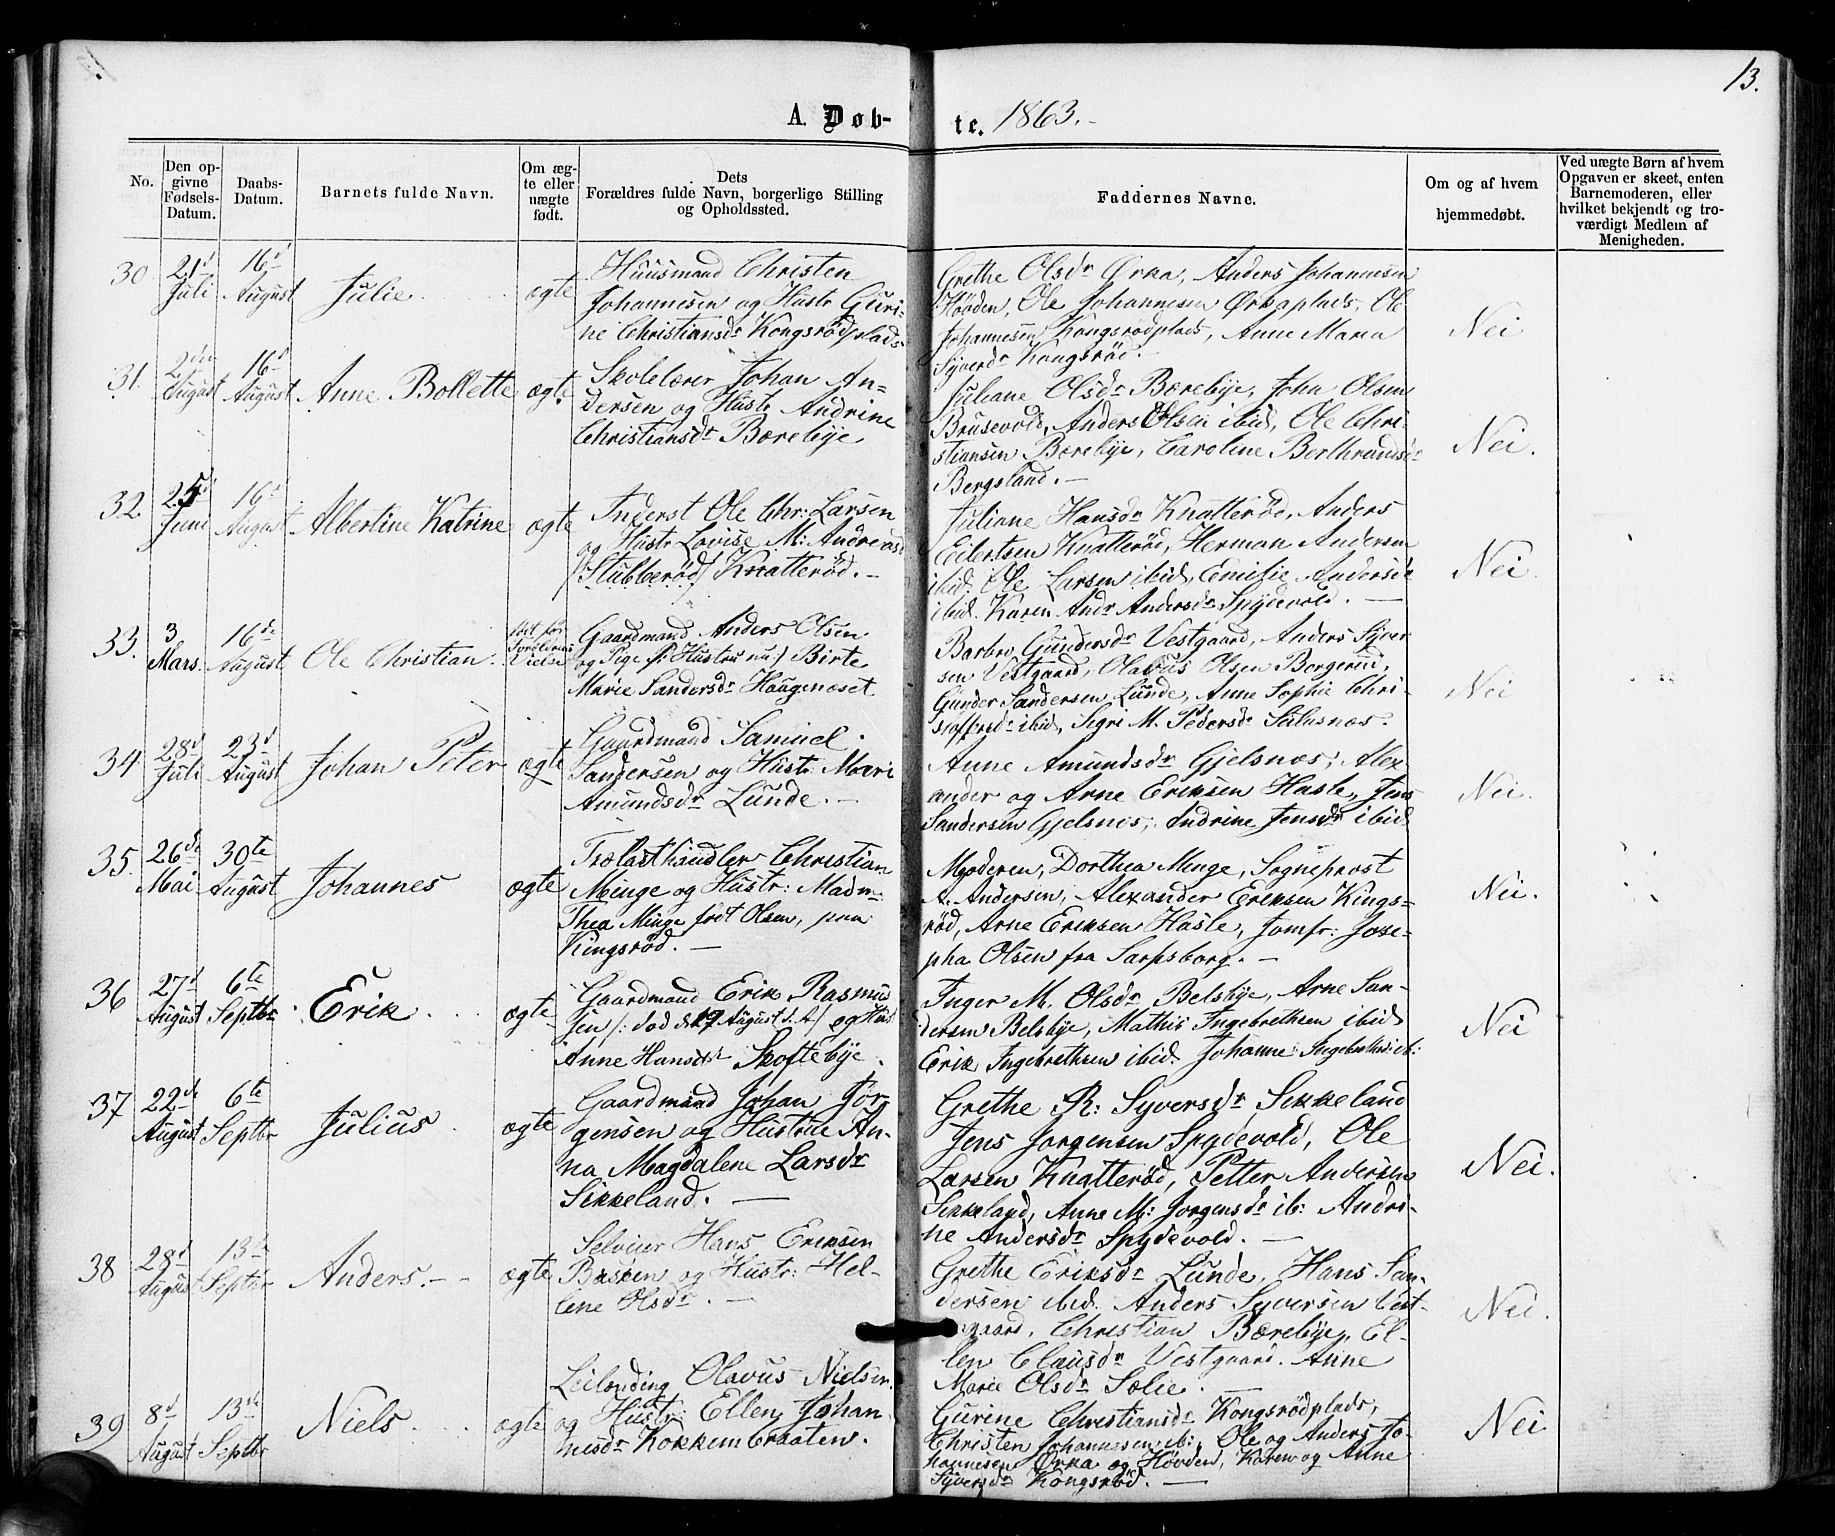 13.
A. Døb- te. 1863.-
No.
Den op-
givne
Fødsels-
Datum.
Daabs-
Datum.
Barnets fulde Navn.
Om æg-
te eller
uægte
født.
Dets
Forældres fulde Navn, borgerlige Stilling
og Opholdssted.
Faddernes Navne.
Om og af hvem
hjemmedøbt.
Ved uægte Børn af hvem
Opgaven er skeet, enten
Barnemoderen, eller
hvilket bekjendt og tro-
værdigt Medlem af
Menigheden.
30
21d
Juli
16d
August
Julie
ægte
Huusmand Christen
Johannesen og Hustr Guri-
ne Christiansdr Kongsrødplads
Grethe Olsdr Ørka, Anders Johannesen
Høvden, Ole Johannesen Ørkaplads, Ole
Johannesen Kongsrødplads, Anne Maria
Syversdr Kongsrød.-
Nei
31.
2den
August
16d
August
Anne Bollette
ægte
Skolelærer Johan An-
dersen og Hustr Andrine
Christiansdr Bærebye
Juliane Olsdr Bærebye, John Olsen
Brusevold, Anders Olsen ibid, Ole Chri-
stiansen Bærebye, Caroline Berthrandsdr
Bergsland.-
Nei.
32.
25d
Juni
16d
August
Albertine Katrine
ægte
Inderst Ole Chr: Larsen
og Hustr Lovise M: Andreasd
/Stubberød/ Knatterød.-
Juliane Hansdr Knatterød, Anders
Eilertsen Knatterød, Herman Andersen
ibid, Ole Larsen ibid, Emilie Andersdr
ibid. Karen Andr Andersdr Spydevold.
Nei
33.
3
Mars.
16de
August
Ole Christian.
født før
Forældrenes
Vielse
Gaardmand Anders Olsen
og Pige /: Hustru nu:/ Birte
Marie Sandersdr Haugenæset
Barbro Gundersdr Vestgaard, Anders Syver
sen Vestgaard, Olavus Olsen Borgerud,
Gunder Sandersen Lunde, Anne Sophie Chri-
stoffersdr ibid, Sigri M. Pedersdr
Nei
34
28d
Juli
23d
August
Johan Peter
ægte
Gaardmand Samuel
Sandersen og Hustr Mari
Amundsdr Lunde.-
Anne Amundsdr Gjelsnæs, Alex
ander og Arne Eriksen Hasle, Jens
Sandersen Gjelsnes, Andrine Jensdr ibid
Nei.
35.
26de
Mai
30te
August
Johannes
ægte
Trælasthandler Christian
Minge og Hustr: Madm-
Thea Minge født Olsen, paa
Kingsrød.-
Moderen, Dorthea Minge, Sogneprost
A. Andersen, Alexander Eriksen Kings=
rød, Arne Eriksen Hasle, Jomfr: Jose-
pha Olsen fra Sarpsborg.-
Nei.
36
27d
August
6te
Septbr
Erik
ægte
Gaardmand Erik Rasmus
sen /: død d 17 August d. A:/ og Hust
Anne Hansdr Skoftebye.
Inger M. Olsdr Belsbye, Arne San-
dersen Belsbye, Mathis Ingebrethsen ibid
Erik Ingebrethsen ibid. Johanne Ingebrethsdr ib:
Nei
37
22de
August
6te
Septbr
Julius
ægte
Gaardmand Johan Jør-
gensen og Hustrue An-
na Magdalene Larsdr
Sikkeland.-
Grethe R: Syversdr Sikkeland
Jens Jorgensen Spydevold, Ole
Larsen Knatterød, Petter Andersen
Sikkeland, Anne M: Jorgensdr ib: Andri-
ne Andersdr Spydevold.-
Nei.
38
28d
August
13de
Septbr
Anders.-
ægte
Selveier Hans Eriksen
Bakken og Hustr: Hel-
lene Olsdr.-
Grethe Eriksdr Lunde, Hans San-
dersen ibid. Anders Syversen Vest-
gaard, Christian Bærebye, El-
len Clausdr Vestgaard. Anne
Marie Olsdr Sælie.-
Nei.
39
8d
August
13de
Septbr
Niels.
ægte
Leilænding Olavus Nielsen
og Hustr: Ellen Johan
nesdr Kokkembraaten.
Gurine Christiansdr Kongsrødplads,
Christen Johannesen ib:, Ole og Anders Jo-
hannesen Ørka og Høvden, Karen og Anne
Syversdr Kongsrød.-
Nei